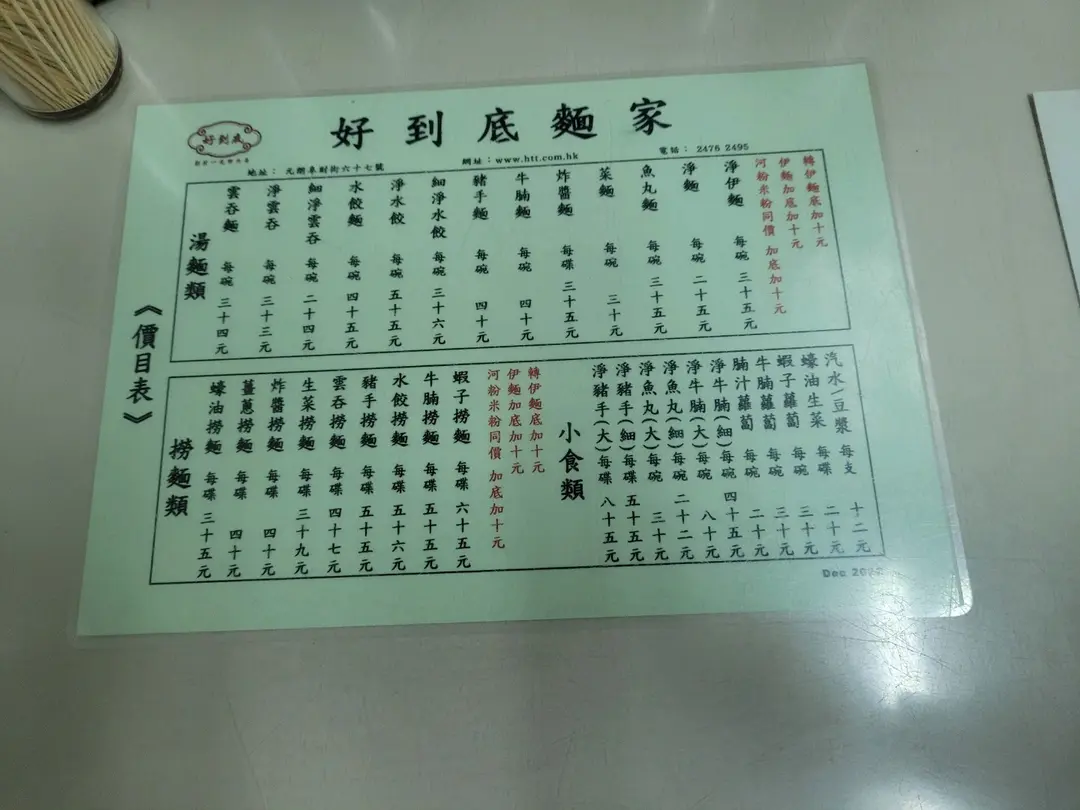 好到底麵家
好到底
地址： 元朗阜財街六十七號
網址：www.htt.com.hk
電話： 2476 2495
《價目表》
湯麵類
雲吞麵 每碗 三十四元
淨雲吞 每碗 三十三元
細淨雲吞 每碗 二十四元
水餃麵 每碗 四十五元
淨水餃 每碗 五十五元
細淨水餃 每碗 三十六元
豬手麵 每碗 四十元
牛腩麵 每碗 四十元
炸醬麵 每碟 三十五元
菜麵 每碗 三十元
魚丸麵 每碗 三十五元
淨麵 每碗 二十五元
淨伊麵 每碗 三十五元
河粉米粉同價 加底加十元
伊麵加底加十元
轉伊麵底加十元
撈麵類
蠔油撈麵 每碟 三十五元
薑蔥撈麵 每碟 四十元
炸醬撈麵 每碟 四十元
生菜撈麵 每碟 三十九元
雲吞撈麵 每碟 四十七元
豬手撈麵 每碟 五十五元
水餃撈麵 每碟 五十六元
牛腩撈麵 每碟 五十五元
蝦子撈麵 每碟 六十五元
河粉米粉同價 加底加十元
伊麵加底加十元
轉伊麵底加十元
小食類
淨豬手(大) 每碟 八十五元
淨豬手(細) 每碟 五十五元
淨魚丸(大) 每碗 三十元
淨魚丸(細) 每碗 二十二元
淨牛腩(大) 每碗 八十元
淨牛腩(細) 每碗 四十五元
腩汁蘿蔔 每碗 二十元
牛腩蘿蔔 每碗 三十元
蝦子蘿蔔 每碗 三十元
蠔油生菜 每碟 二十元
汽水/豆漿 每支 十二元
Dec